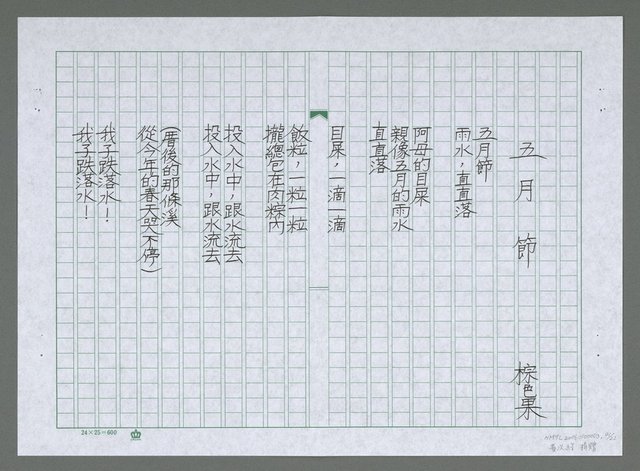 五月節
棕色果
五月節
雨水，直直落
阿母的目屎
親像五月的雨水
直直落
目屎，一滴一滴
飯粒，一粒一粒
攏總包在肉粽內
投入水中，跟水流去
投入水中，跟水流去
(厝後的那條溪
從今年的春天哭不停)
我子跌落水！
我子跌落水！
24×25=600